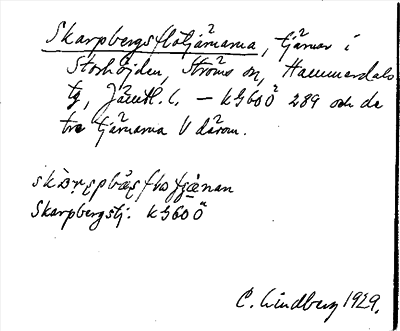 Skarpbergsflötjärnarna, tjärnar i
Storhöjden, Ströms sn, Hammerdals
tg, Jämtl. l. – K G600 289 och de
tre tjärnarna V därom.
Skarpbergstj. K G600
C. Lindberg 1929.